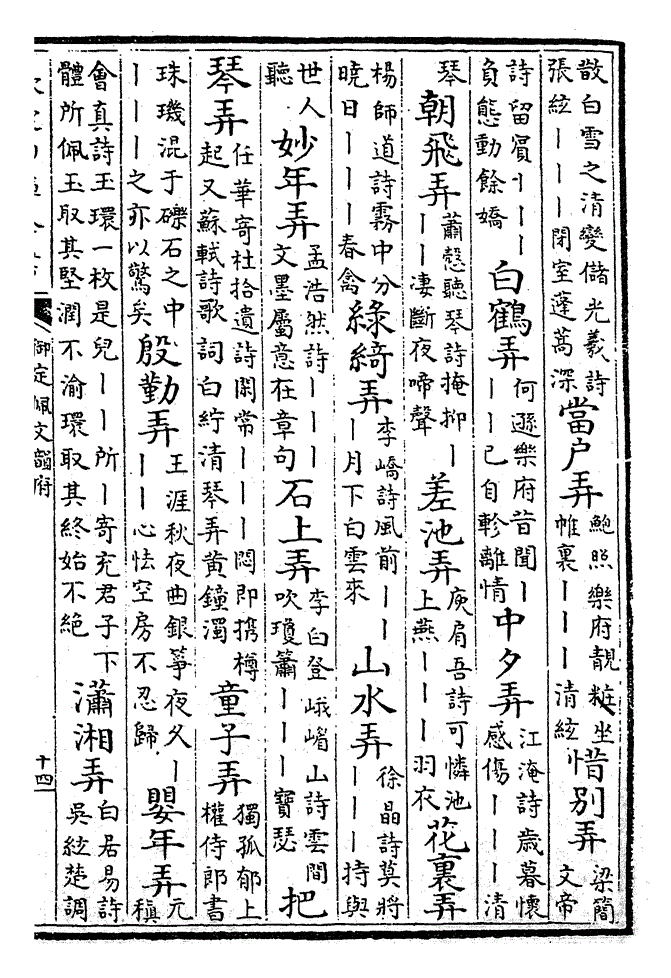 散白雪之清變儲光羲詩
張絃丨丨丨閉室蓬蒿深
當户弄
鮑照樂府靚糚坐
帷裏丨丨丨清絃
惜别弄
梁簡
文帝
詩留賔丨丨丨
負態動餘嬌
白鶴弄
何遜樂府昔聞丨
丨丨已自軫離情
中夕弄
江淹詩歲暮懐
感傷丨丨丨清
琴
朝飛弄
蕭慤聽琴詩掩抑丨
丨丨凄斷夜啼聲
差池弄
庾肩吾詩可憐池
上燕丨丨丨羽衣
花裏弄
楊師道詩霧中分
曉日丨丨丨春禽
緑綺弄
李嶠詩風前丨丨
丨月下白雲來
山水弄
徐晶詩莫將
丨丨丨持與
世人
聽
妙年弄
孟浩然詩丨丨丨
文墨屬意在章句
石上弄
李白登峨嵋山詩雲間
吹瓊簫丨丨丨寳瑟
把琴弄
任華寄社拾遺詩閑常丨丨丨悶即携樽
起又蘇軾詩歌詞白紵清琴弄黄鐘濁
童子弄
獨孤郁上
權侍郎書
珠璣混于礫石之中
丨丨丨之亦以驚矣
殷勤弄
王涯秋夜曲銀箏夜夂丨
丨丨心怯空房不忍歸
嬰年弄
元
稹
會真詩玉環一枚是兒丨丨所丨寄充君子下
體所佩玉取其堅潤不渝環取其終始不絶
瀟湘弄
白居易詩
吳絃楚調
御定佩文韻府
十四